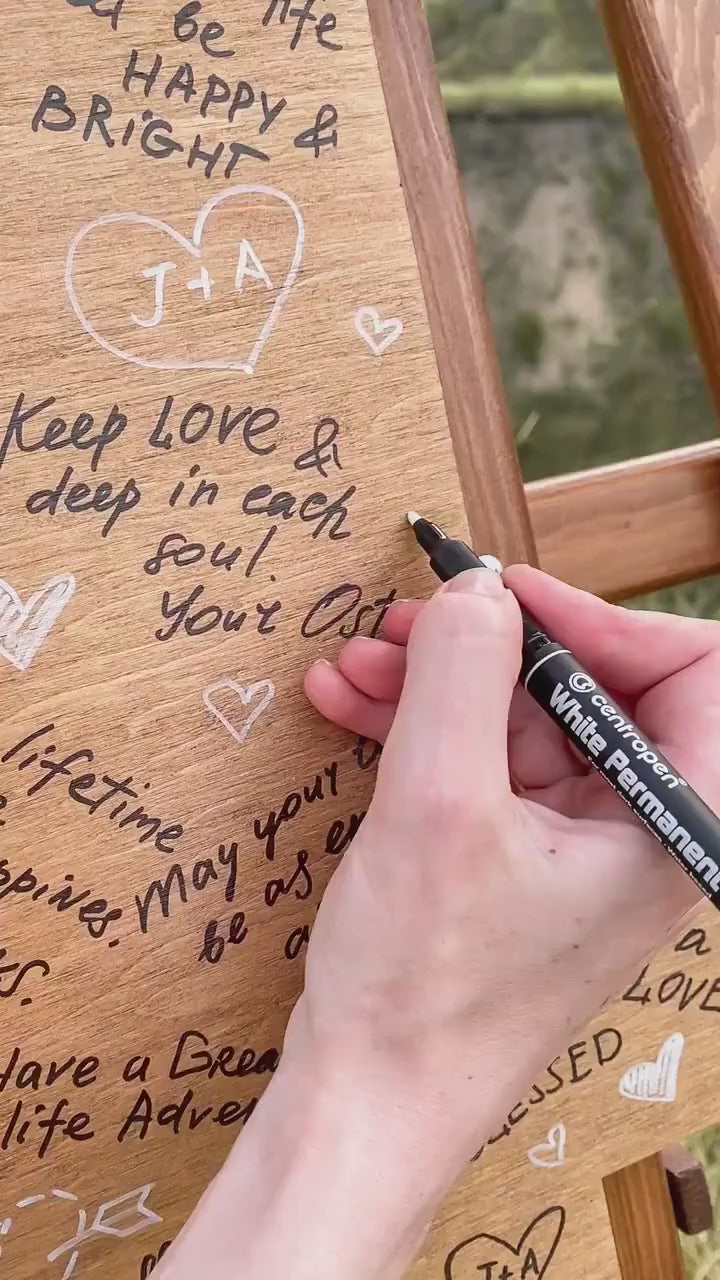 be life
HAPPY &
BRIGHT
J + A
Keep LOVE &
deep in each
soul.
Your Ost
lifetime
May your
be as
Have a Grea
life Adve
a
LOVE
J+A
centropen
White Permanent